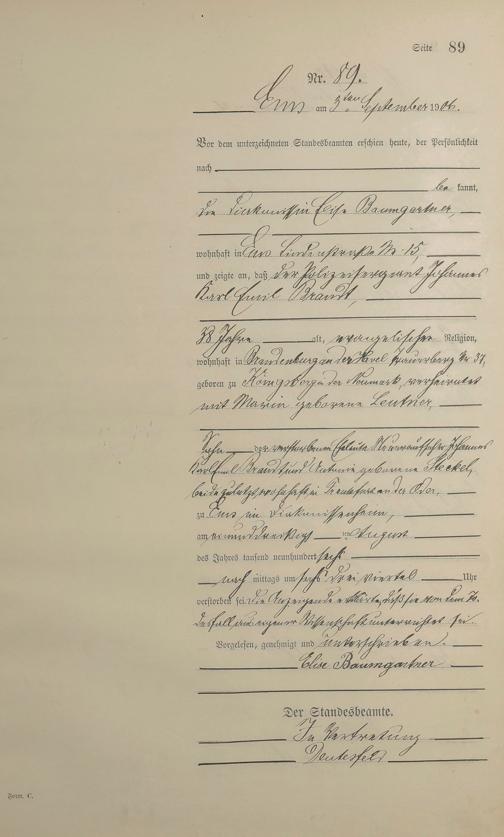 Seite 89
Nr. 89.
Ems am 3ten September 1906.
Vor dem unterzeichneten Standesbeamten erschien heute, der Persönlichkeit
nach
be kannt,
die Diakonissin Elise Baumgartner,
wohnhaft in Ems Lindenstraße Nr. 15,
und zeigte an, daß der Polizeisergeant Johannes
Karl Emil Brandt,
38 Jahre alt, evangelischer Religion,
wohnhaft in Brandenburg an der Havel Nr 37,
geboren zu Königsberg in der Neumark, verheiratet
mit Maria geborene Leutner,
Sohn der verstorbenen Eheleute Johannes
Karl Emil Brandt und Antonie geborene Steckel,
beide zuletzt wohnhaft in Frankfurt an der Oder,
zu Ems im Diakonissenheim,
am einunddreißigsten August
des Jahres tausend neunhundert sechs
nach mittags um sechs drei viertel Uhr
verstorben sei. Die Anzeigende erklärte, daß sie von dem Ster-
befall aus eigener Wissenschaft unterrichtet sei.
Vorgelesen, genehmigt und unterschrieben.
Elise Baumgartner
Der Standesbeamte.
In Vertretung
Form. C.